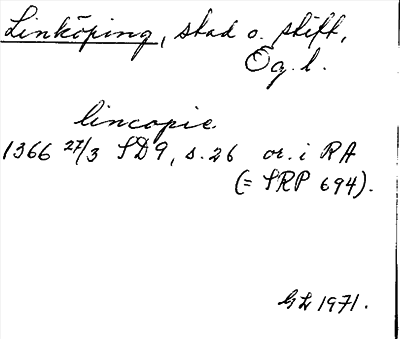 Linköping, stad o. stift,
Ög. l.
lincopie.
1366 27/3 SD 9, s. 26 or. i RA
(= SRP 694).
GL 1971.